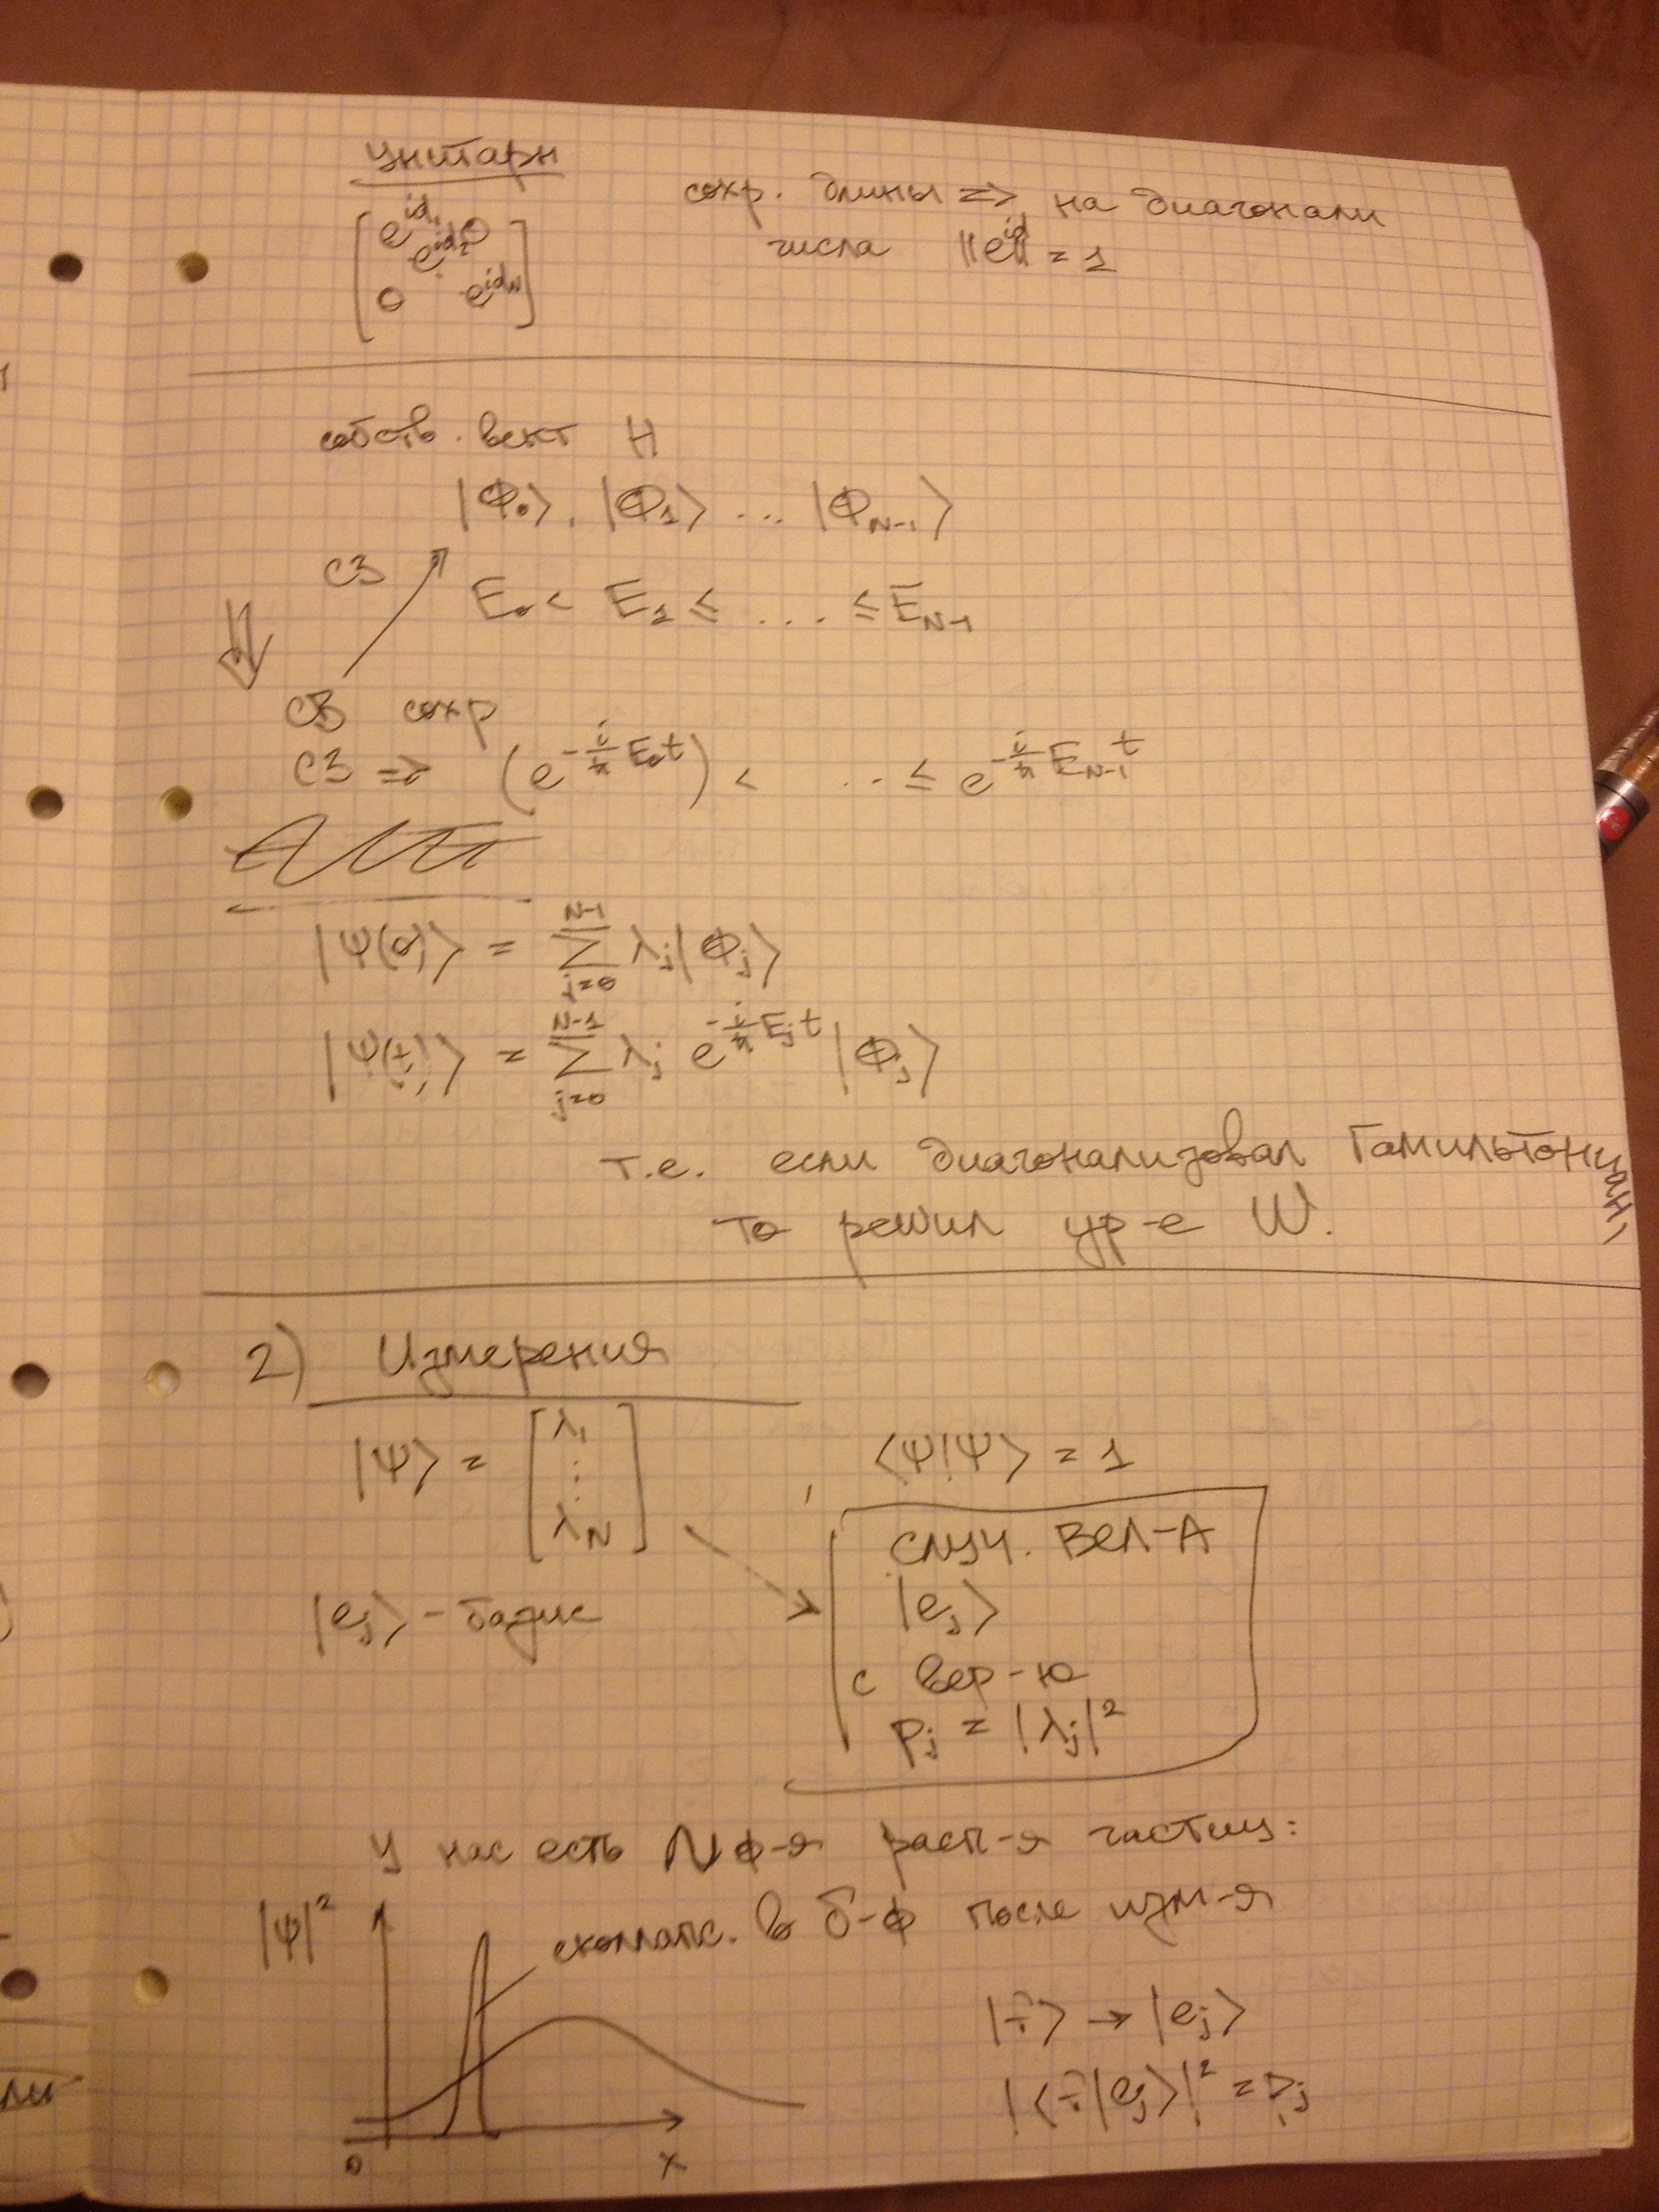 унитарн
[e^{iα₁} 0
e^{iα₂}
0 e^{iα_N}]
сохр. длины => на диагонали
числа ||e^{iα}|| = 1
собств. вект H
|Φ₀>, |Φ₁> ... |Φ_{N-1}>
СЗ
E₀ < E₁ ≤ ... ≤ E_{N-1}
СВ сохр
СЗ => (e^{-i/ħ E₀t}) < .. ≤ e^{-i/ħ E_{N-1} t}
|Ψ(0)> = Σ_{j=0}^{N-1} λ_j|Φ_j>
|Ψ(t)> = Σ_{j=0}^{N-1} λ_j e^{-i/ħ E_j t} |Φ_j>
т.е. если диагонализовал Гамильтониан,
то решил ур-е Ш.
2) Измерения
|Ψ> = [λ₁ ⋮ λ_N] , <Ψ|Ψ> = 1
случ. вел-а
|e_j> - базис
|e_j>
с вер-ю
p_j = |λ_j|²
У нас есть ф-я расп-я частиц:
|Ψ|²
сколлапс. в δ-ф после изм-я
|Ψ> → |e_j>
|<Ψ|e_j>|² = p_j
0 x